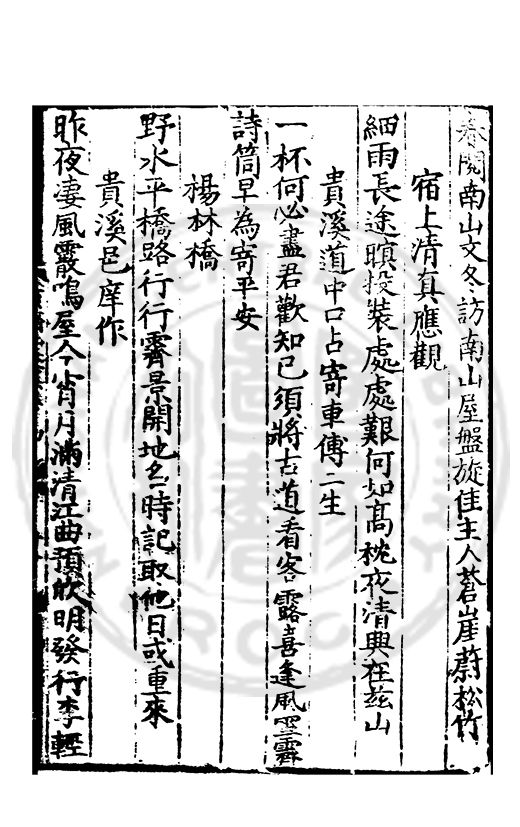 春閱南山文冬訪南山屋盤旋佳主人蒼崖蔚松竹
宿上清真應觀
細雨長途暝投裝處處艱何如高枕夜清興在茲山
貴溪道中口占寄車傅二生
一杯何必盡君歡知己須將古道看客露喜逢風望霽
詩筒早為寄平安
楊林橋
野水平橋路行行霽景開地名時記取他日或重來
貴溪邑庠作
昨夜淒風霰鳴屋今宵月滿清江曲預欣明發行李輕